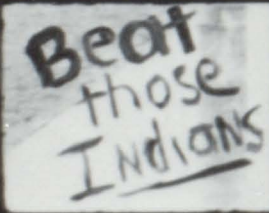 Beat
those
Indians